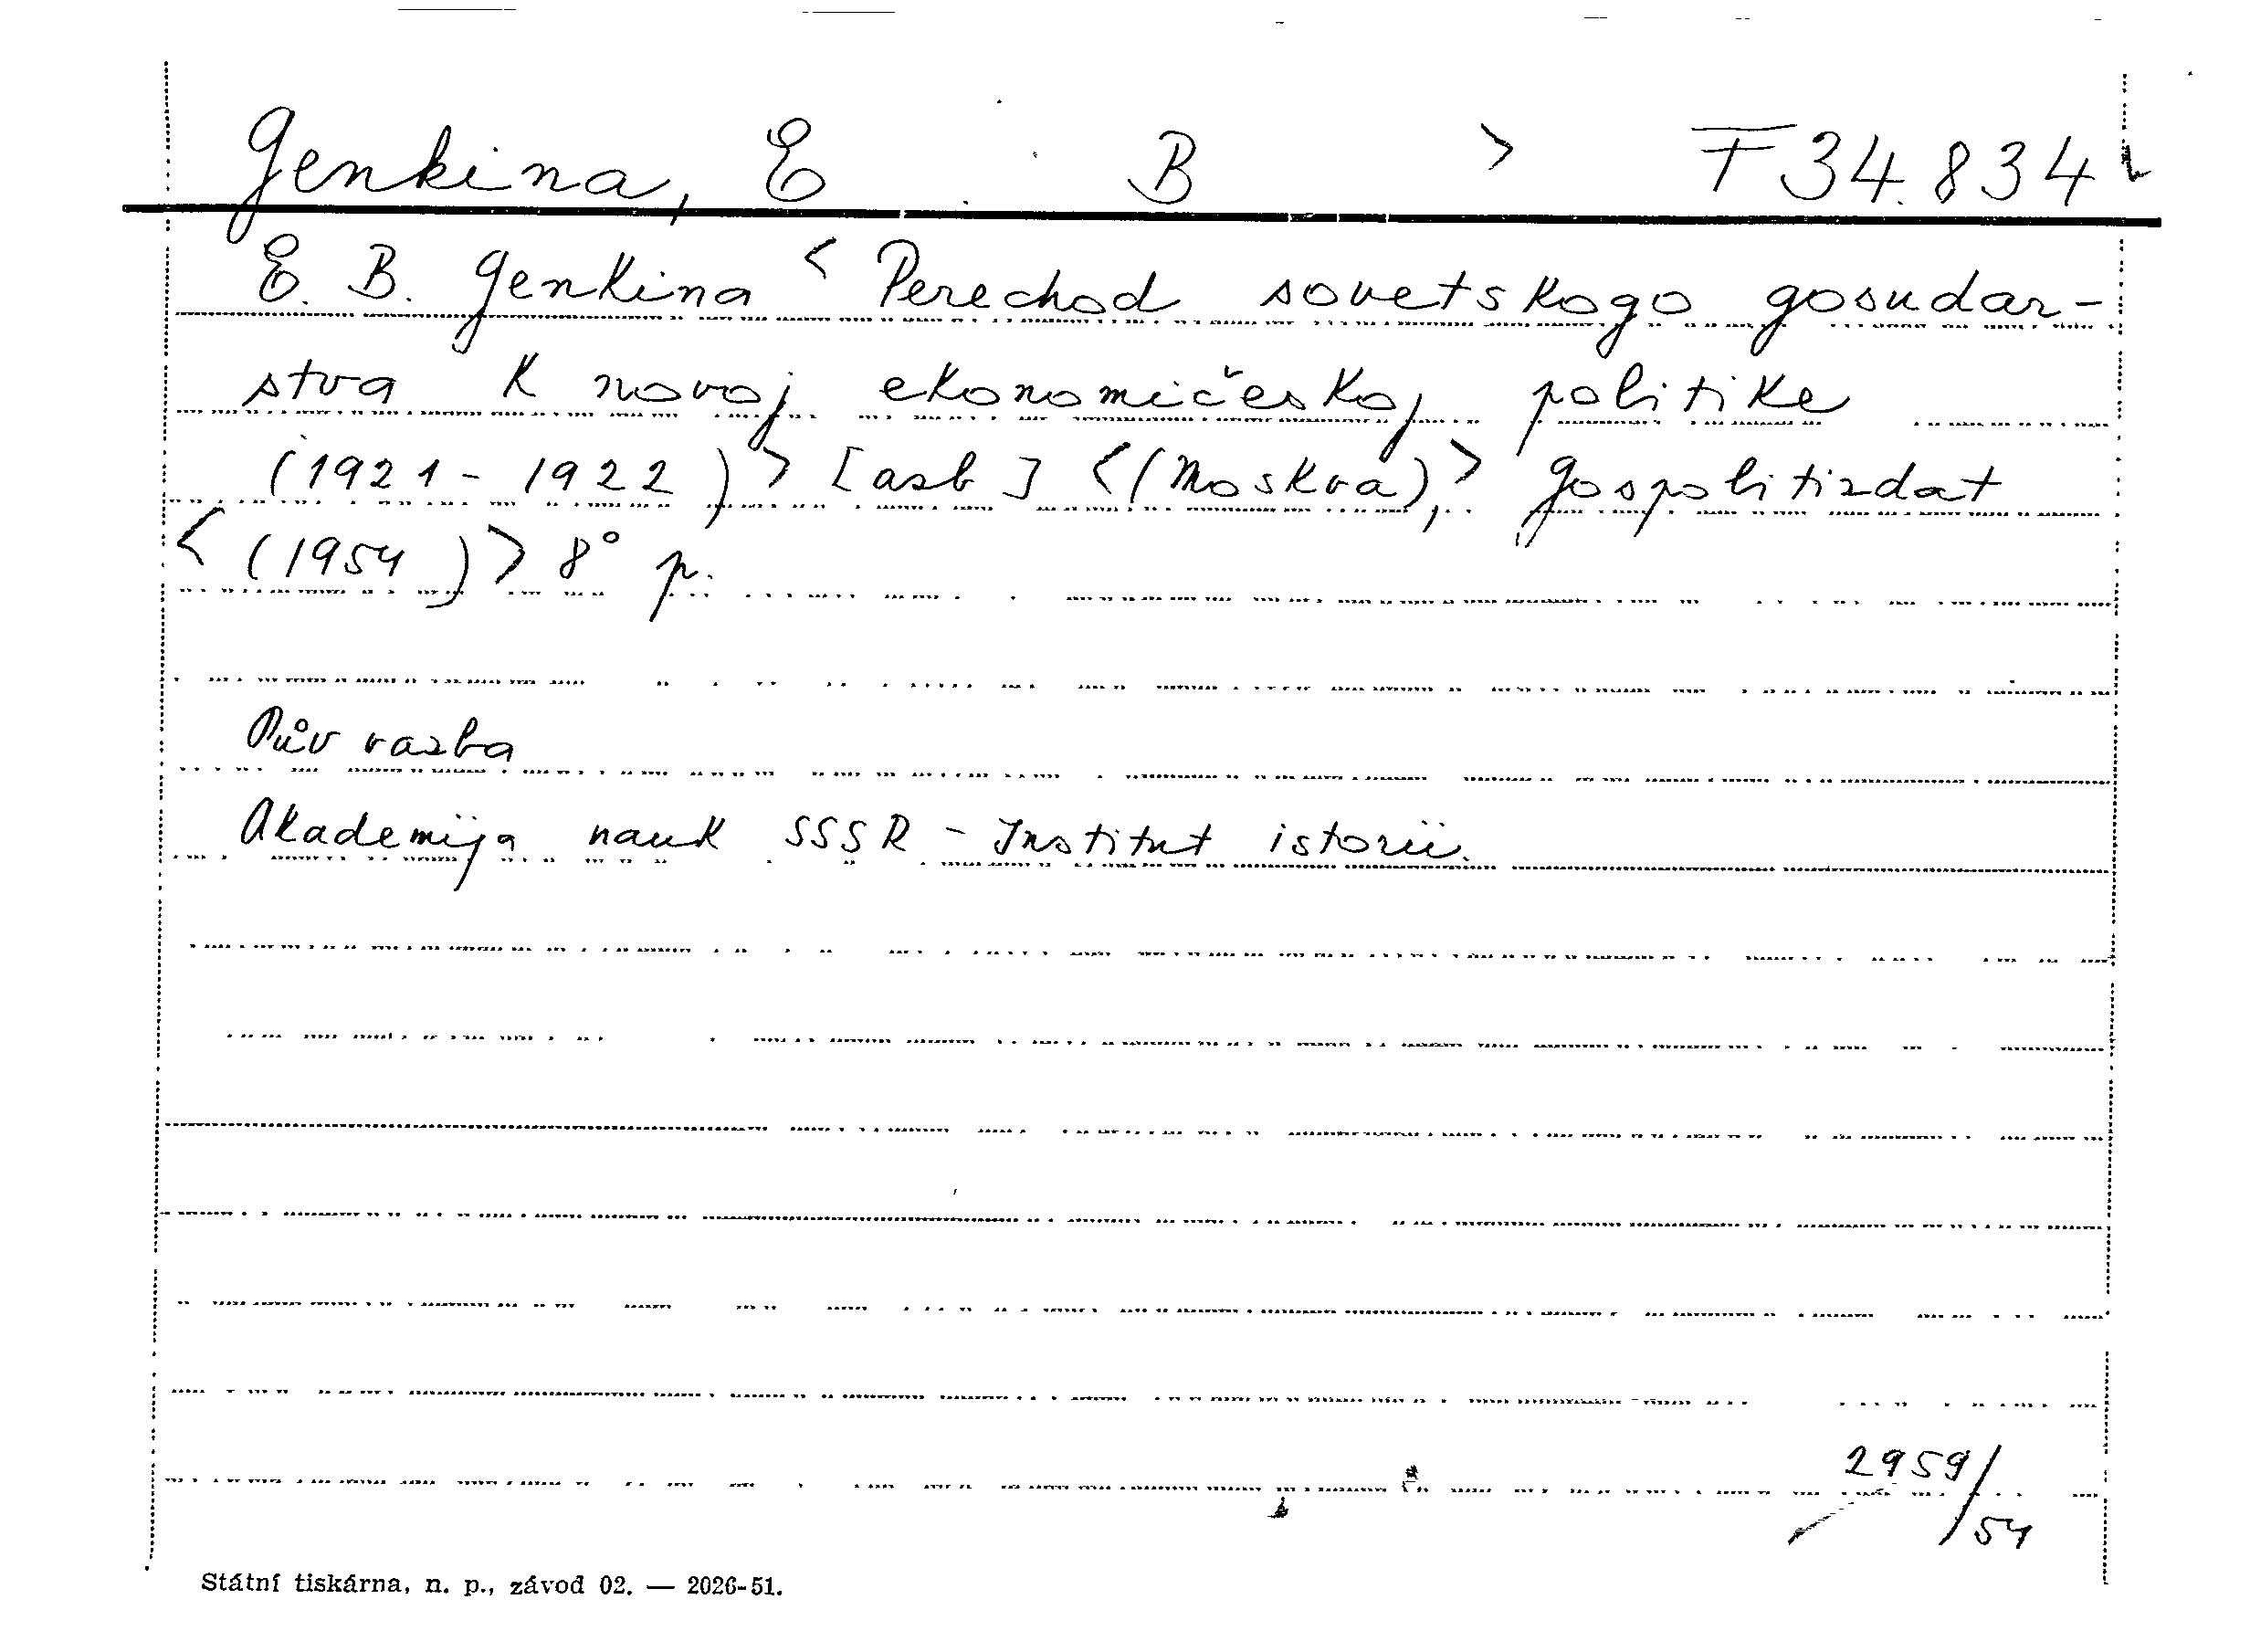 Genkina, E B > F 34.834
E. B. Genkina < Perechod sovetskogo gosudar-
stva k novoj ekonomičeskoj politike
(1921 - 1922) > [azb] < (Moskva), > Gospolitizdat
< (1954) > 8° p.
Pův vazba
Akademija nauk SSSR - Institut istorii.
2959/
54
Státní tiskárna, n. p., závod 02. — 2026-51.